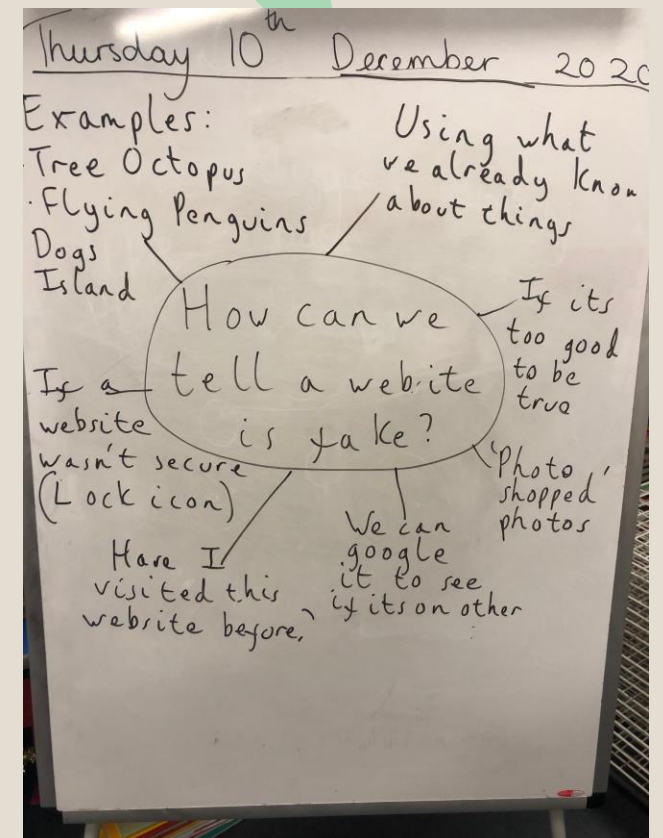 Thursday 10th December 2020
Examples:
· Tree Octopus
· Flying Penguins
Dogs
Island
Using what
we already know
about things
How can we
tell a webite
is fake?
If its
too good
to be
true
'Photo
shopped'
photos
We can
google
it to see
if its on other
Have I
visited this
website before?
If a
website
wasn't secure
(Lock icon)